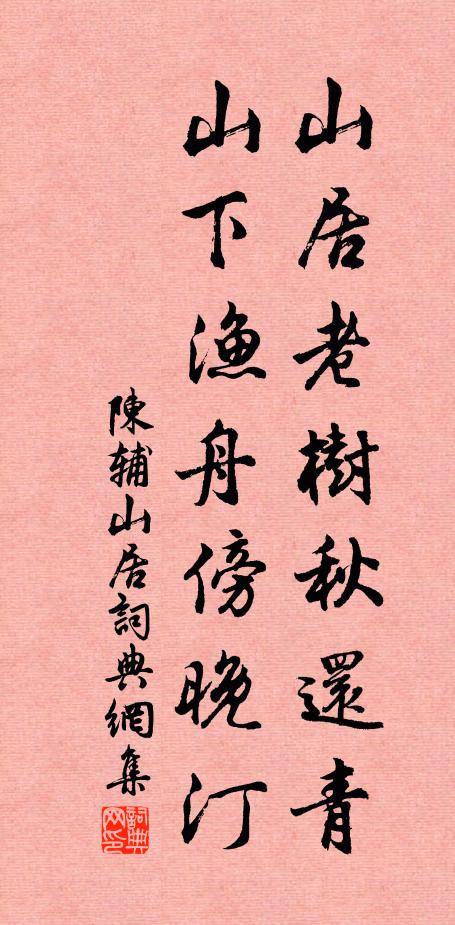 山居老樹秋還青
山下漁舟傍晚汀
陳辅山居詞典網集
詞典网印